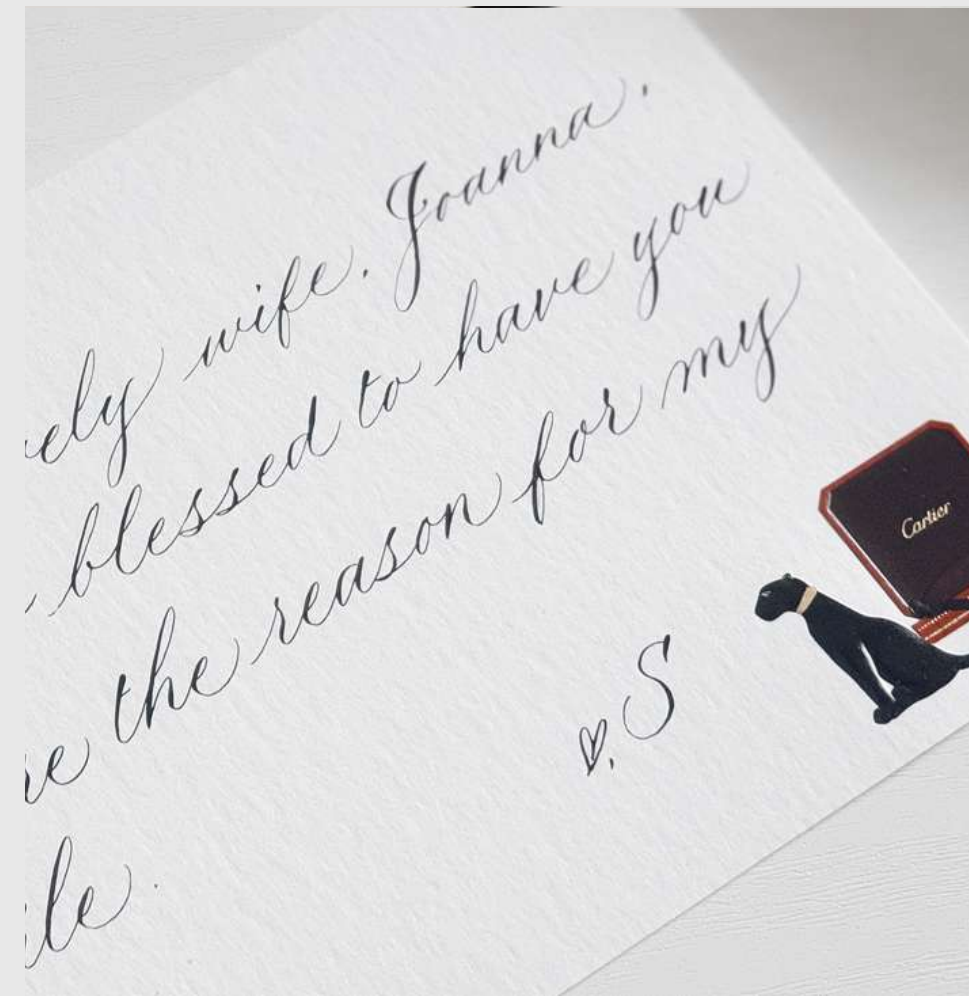 ely wife, Joanna,
blessed to have you
the reason for my
le.
♡, S
Cartier